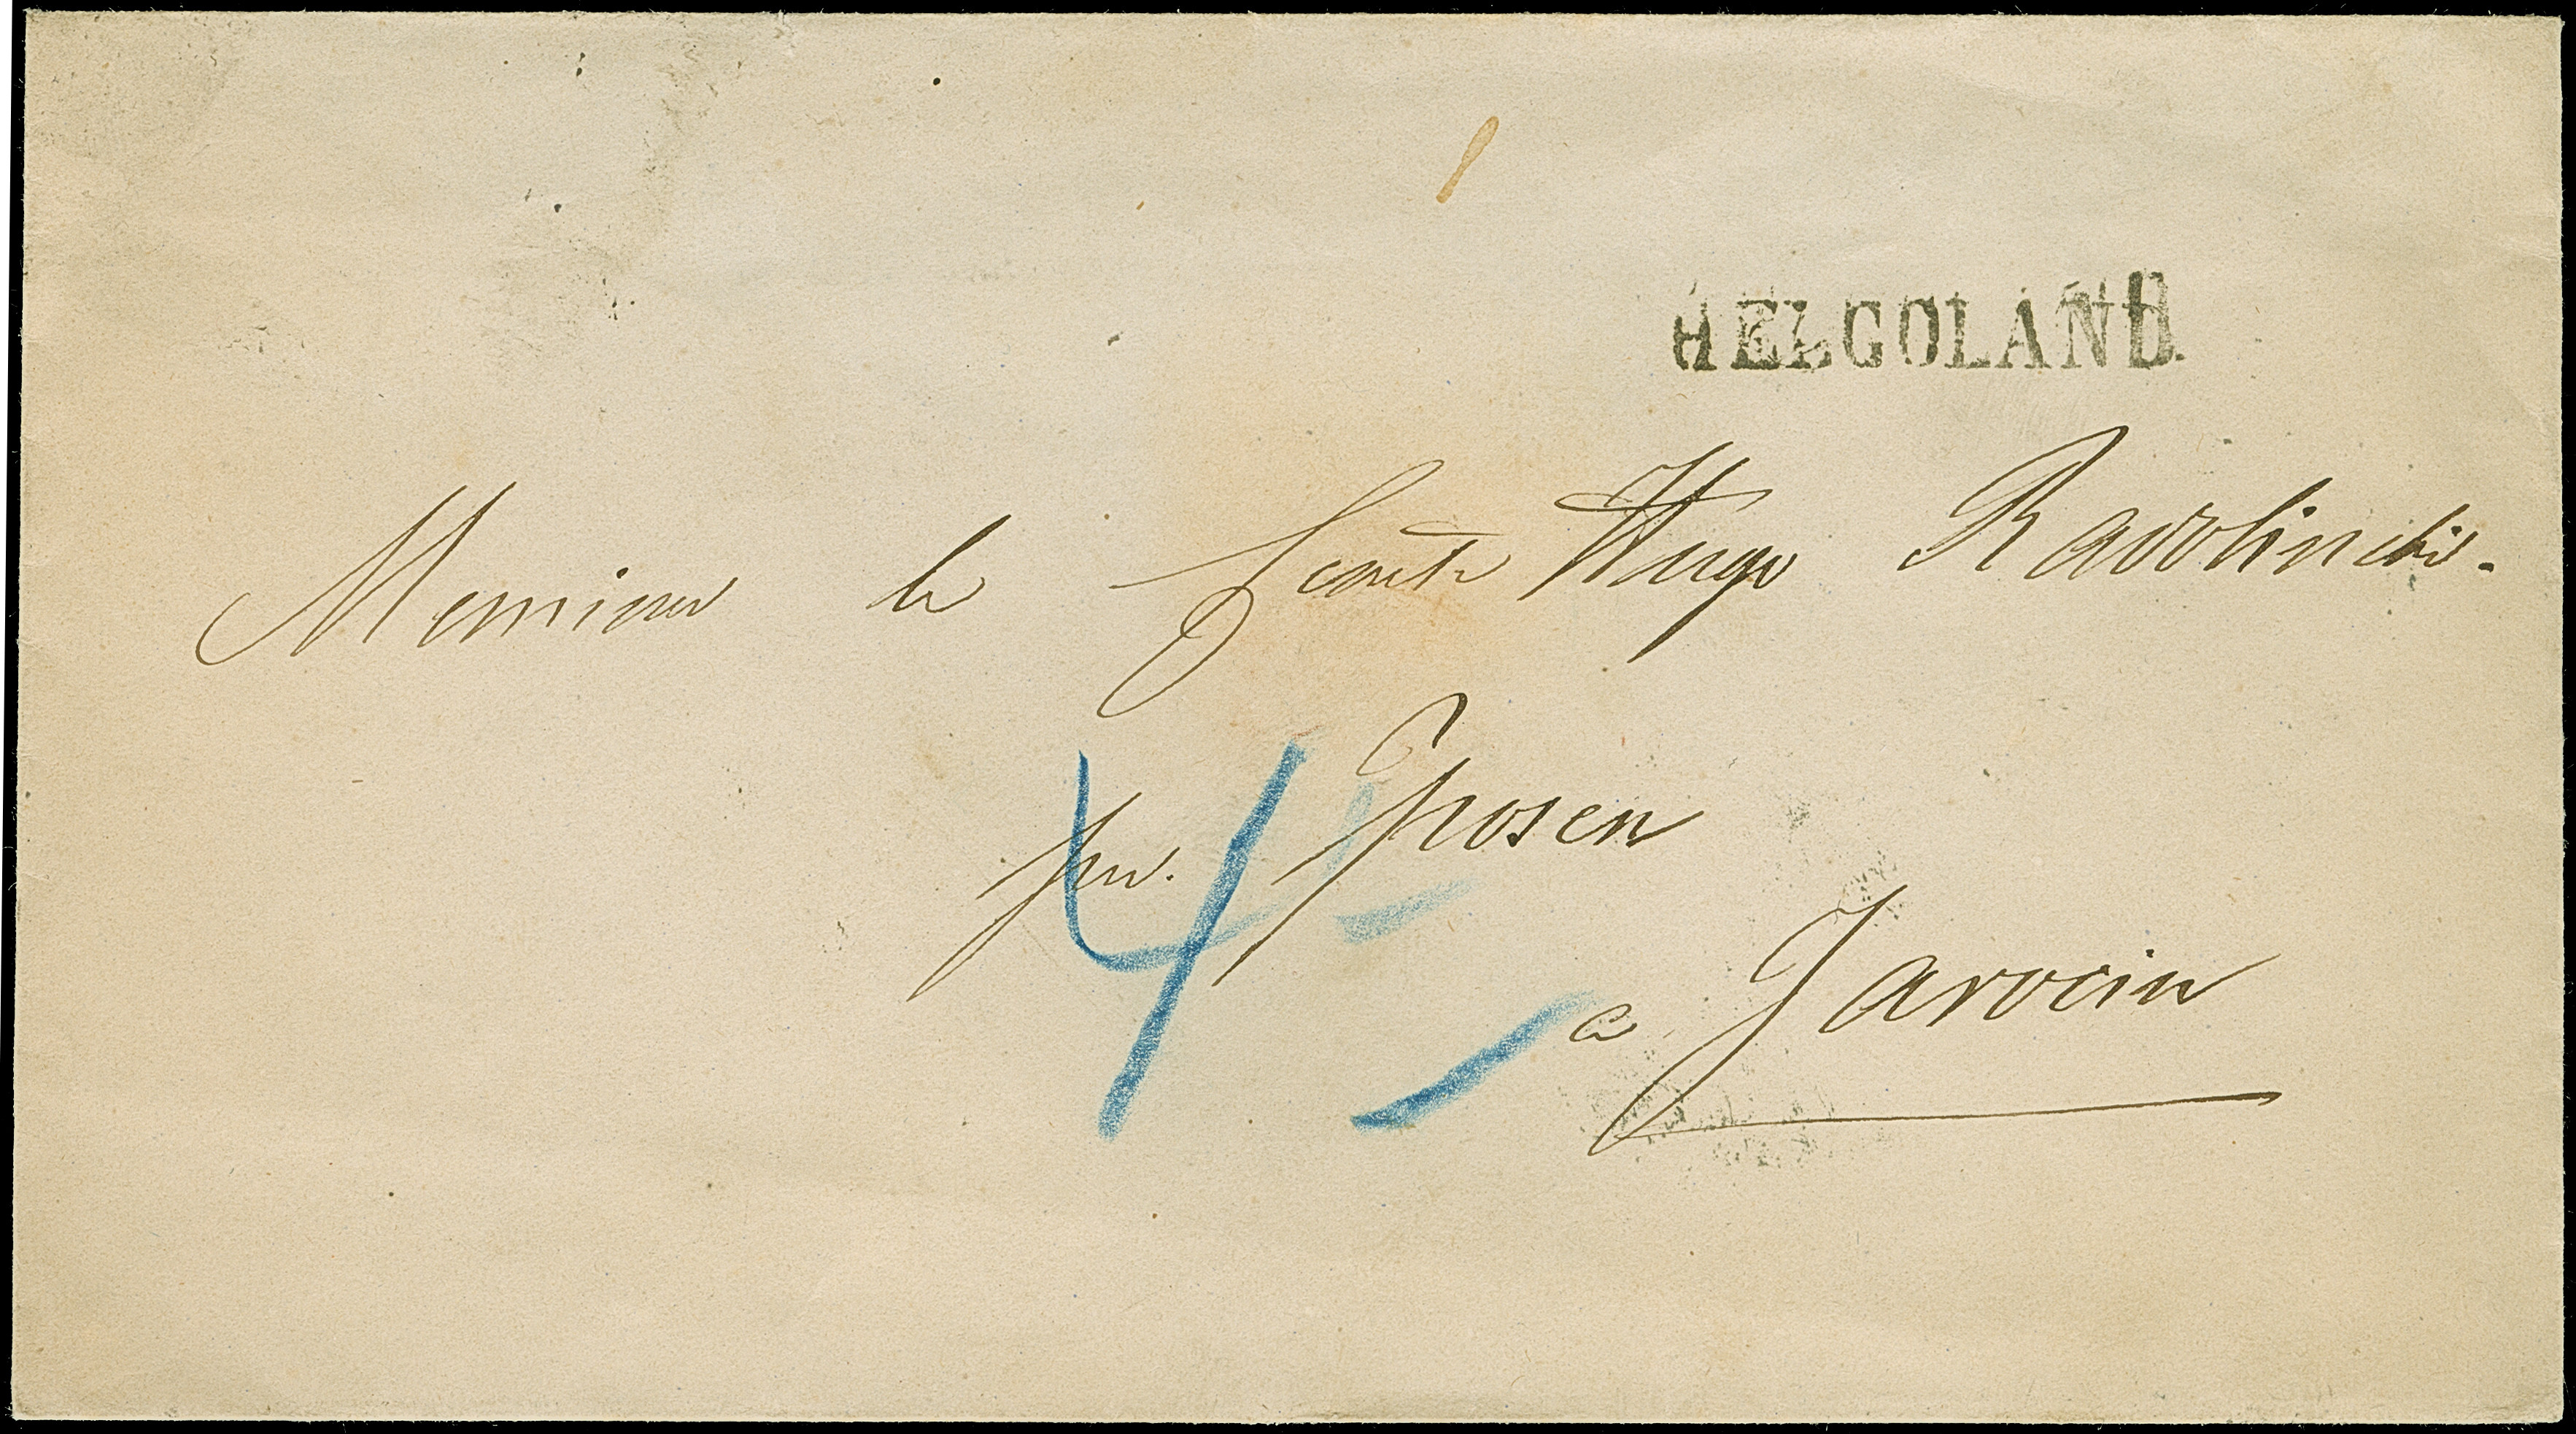 HELGOLAND.
Monsieur le Comte Hugo Radolinski.
pr. Posen
a Jarocin
4